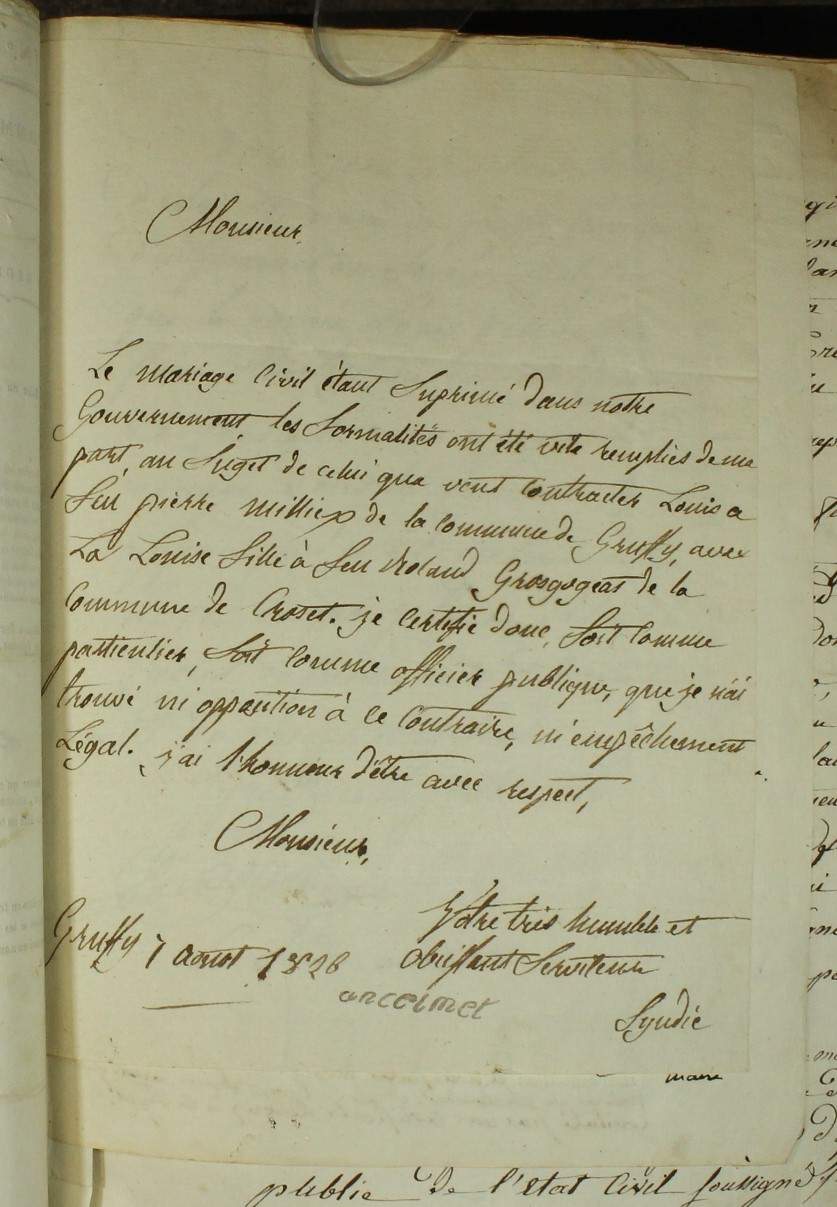 Monsieur,
Le mariage Civil étant Suprimé dans notre
Gouvernement les formalités ont été vite remplies de ma
part, au Suget de celui que veut Contracter Louis a
feu pierre milliex de la Commune de Gruffy, avec
La Louise fille à feu Roland Grosgogeat de la
Commune de Croset. je certifie donc, Soit Comme
particulier, Soit Comme officier publique, que je n'ai
trouvé ni opposition à ce Contraire, ni empêchement
Légal. j'ai l'honneur d'être avec respect,
Monsieur,
Votre très humble et
Gruffy 7 aoust 1826 obéissant Serviteur
Syndic
maire
public de l'état Civil soussigné